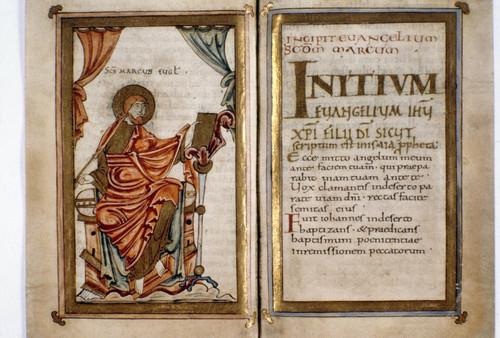 SCS MARCUS EUGL
INCIPIT EVANGELIUM
SCDM MARCUM
INITIUM
EVANGELIUM IHU
XPI FILII DI SICUT
scriptum est in isaia propheta
Ecce mitto angelum meum
ante faciem tuam. qui praepa
rabit viam tuam ante te
Vox clamantis in deserto pa
rate viam dni. rectas facite
semitas eius
Fuit iohannes in deserto
baptizans. & praedicans
baptismum poenitentiae
in remissionem peccatorum